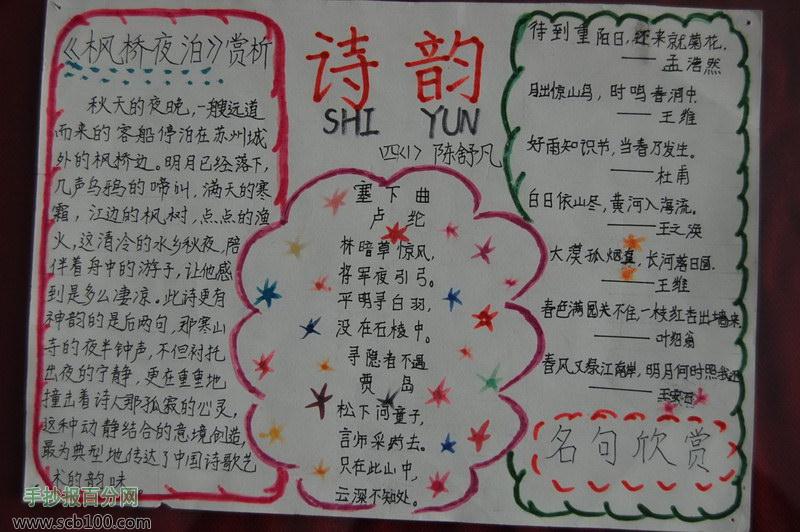 《枫桥夜泊》赏析
秋天的夜晚，一艘远道
而来的客船停泊在苏州城
外的枫桥边。明月已经落下，
几声乌鸦的啼叫，满天的寒
霜，江边的枫树，点点的渔
火，这清冷的水乡秋夜，陪
伴着舟中的游子，让他感
到是多么凄凉。此诗更有
神韵的是后两句，那寒山
寺的夜半钟声，不但衬托
出夜的宁静，更在重重地
撞击着诗人那孤寂的心灵，
这种动静结合的意境创造，
最为典型地传达了中国诗歌艺
术的韵味
诗韵
SHI YUN
四(1) 陈舒凡
塞下曲
卢纶
林暗草惊风，
将军夜引弓。
平明寻白羽，
没在石棱中。
寻隐者不遇
贾岛
松下问童子，
言师采药去。
只在此山中，
云深不知处。
待到重阳日，还来就菊花。
——孟浩然
月出惊山鸟，时鸣春涧中。
——王维
好雨知识节，当春乃发生。
——杜甫
白日依山尽，黄河入海流。
——王之涣
大漠孤烟直，长河落日圆。
——王维
春色满园关不住，一枝红杏出墙来
——叶绍翁
春风又绿江南岸，明月何时照我还
——王安石
名句欣赏
手抄报百分网
www.scb100.com